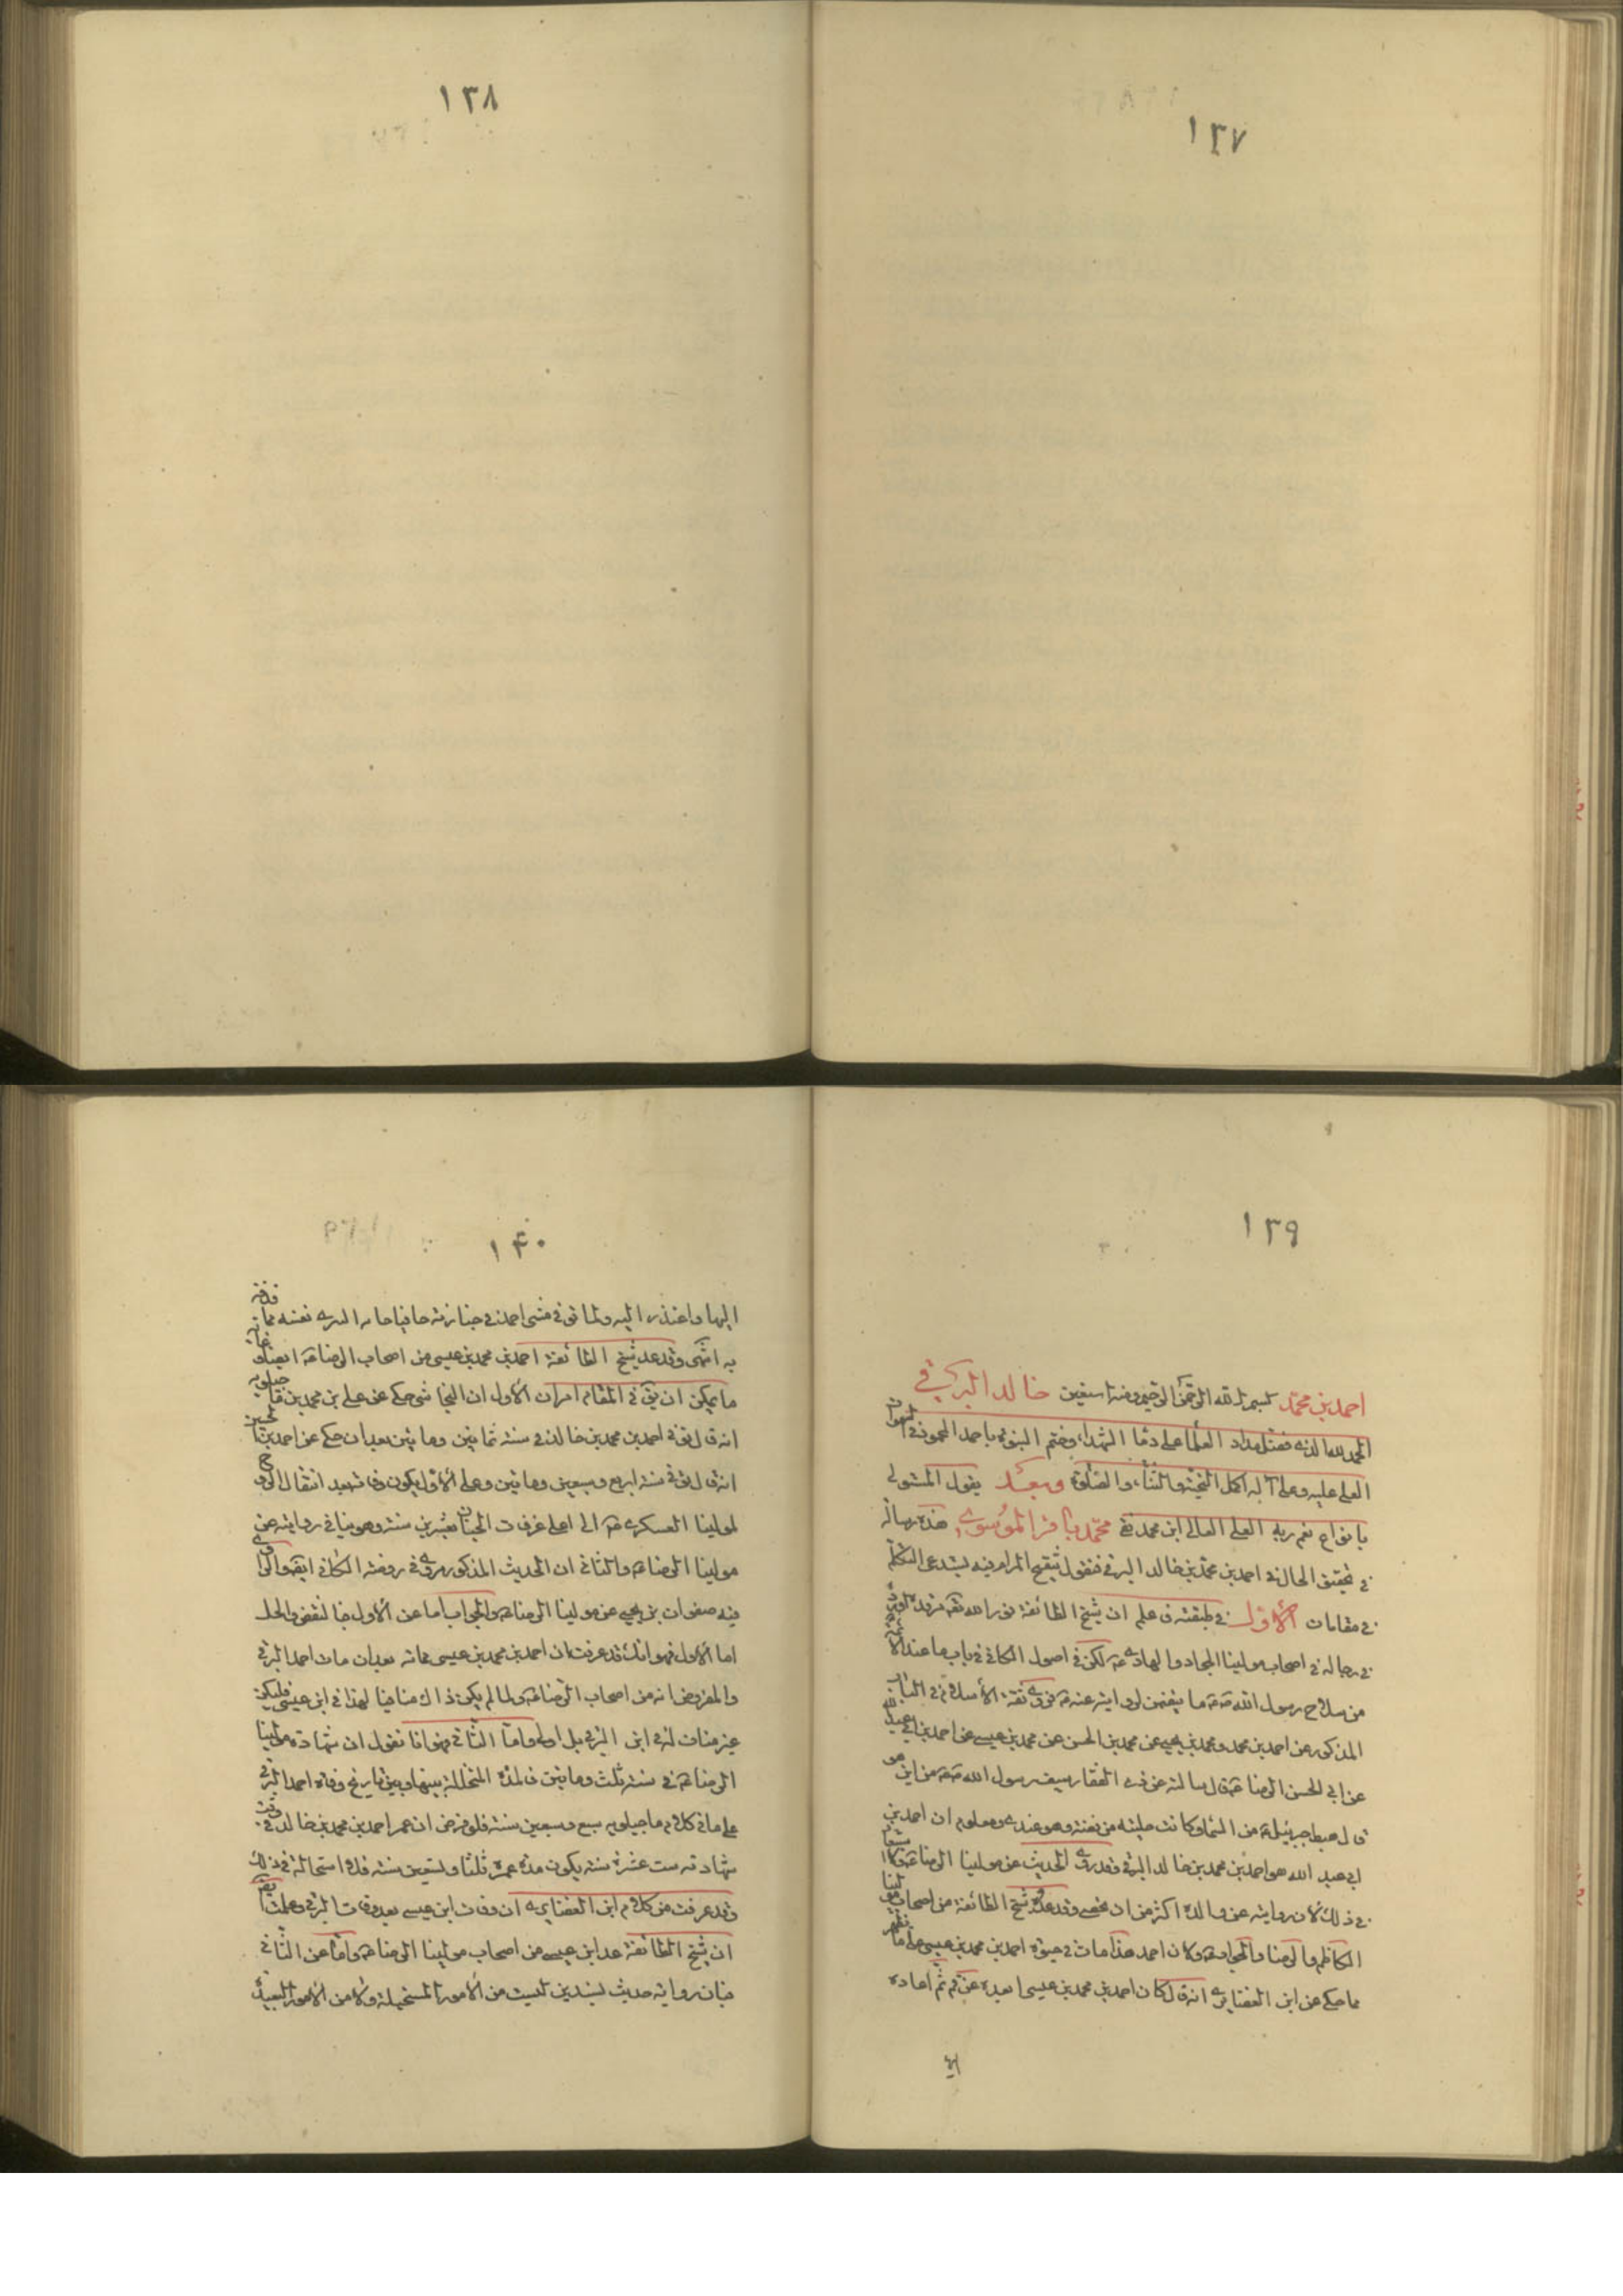 ١٣٧
١٣٨
١٣٩
احمد بن محمد بسم الله الرحمن الرحيم وبه نستعين خالد البرقي
الحمد لله الذي فضل مداد العلماء على دماء الشهداء وختم النبوة باحمد المحمود في السموات
العلى عليه وعلى آله اكمل التحية والثناء والصلوة وبعد يقول المتوسل
بانواع نعم ربه العلى العالى ابن محمد نقى محمد باقر الموسوي هذه رسالة
في تحقيق الحال في احمد بن محمد بن خالد البرقي فنقول تنقيح المرام فيه يستدعى التكلم
في مقامات الاول في طبقته فاعلم ان شيخ الطائفة نور الله تعه مرقده اورده
في رجاله في اصحاب مولينا الجواد والهادي ع لكن في اصول الكافي في باب ما عند الائمة
من سلاح رسول الله ص ما يتضمن لروايته عنه ع فروى ثقة الاسلام في الباب
المذكور عن احمد بن محمد ومحمد بن يحيى عن محمد بن الحسن عن محمد بن عيسى عن احمد بن ابي عبد الله
عن ابي الحسن الرضا ع قال سالته عن ذي الفقار سيف رسول الله ص من اين هو
قال هبط به جبرئيل ع من السماء وكانت حليته من فضة وهو عندي ومعلوم ان احمد بن
ابي عبد الله هو احمد بن محمد بن خالد البرقي وقد روى الحديث عن مولينا الرضا ع
في ذلك لان روايته عن والده اكثر من ان تحصى وقد عده شيخ الطائفة من اصحاب مولينا
الكاظم والرضا والجواد ع وكان احمد هذا مات في حيوة احمد بن محمد بن عيسى على ما يظهر
مما حكى عن ابن الغضايري انه قال كان احمد بن محمد بن عيسى ابعده عن قم ثم اعاده
اليها
١٤٠
اليها واعتذر اليه ولما توفى مشى احمد في جنازته حافيا حاسرا ليبرء نفسه مما قذفه
به انتهى وقد عد شيخ الطائفة احمد بن محمد بن عيسى من اصحاب الرضا ع ايضا وغاية
ما يمكن ان يق في المقام امران الاول ان النجاشى حكى عن على بن محمد بن ماجيلويه
انه قال توفى احمد بن محمد بن خالد في سنة ثمانين وماتين بعد ان حكى عن احمد بن الحسين
انه قال توفى سنة اربع وسبعين وماتين وعلى الاول يكون وفاته بعد انتقال الروح
لمولينا العسكرى ع الى اعلى غرفات الجنان بعشرين سنة وهو ينافى روايته عن
مولينا الرضا ع والثانى ان الحديث المذكور مروى في روضة الكافى ايضا والراوى
فيه صفوان بن يحيى عن مولينا الرضا ع والجواب اما عن الاول فبالنقض والحل
اما الاول فهو انك قد عرفت ان احمد بن محمد بن عيسى مماته بعد ان مات احمد البرقى
والمفروض انه من اصحاب الرضا ع ولما لم يكن ذاك منافيا لهذا في ابن عيسى فليكن
غير مناف له في ابن البرقى بل اولى واما الثانى فهو انا نقول ان شهادة مولينا
الرضا ع في سنة ثلث وماتين فالمدة المتخللة بينها وبين تاريخ وفاة احمد البرقى
على ما في كلام ماجيلويه سبع وسبعين سنة فلو فرض ان عمر احمد بن محمد بن خالد في وقت
شهادته ست عشرة سنة يكون مدة عمره ثلثا وتسعين سنة فلا استحالة في ذلك
وقد عرفت من كلام ابن الغضايرى ان وفات ابن عيسى بعد وفات البرقى وعلمت ايضا
ان شيخ الطائفة عد ابن عيسى من اصحاب مولينا الرضا ع واما عن الثانى
فبان رواية حديث بسندين ليست من الامور المستحيلة ولا من الامور البعيدة